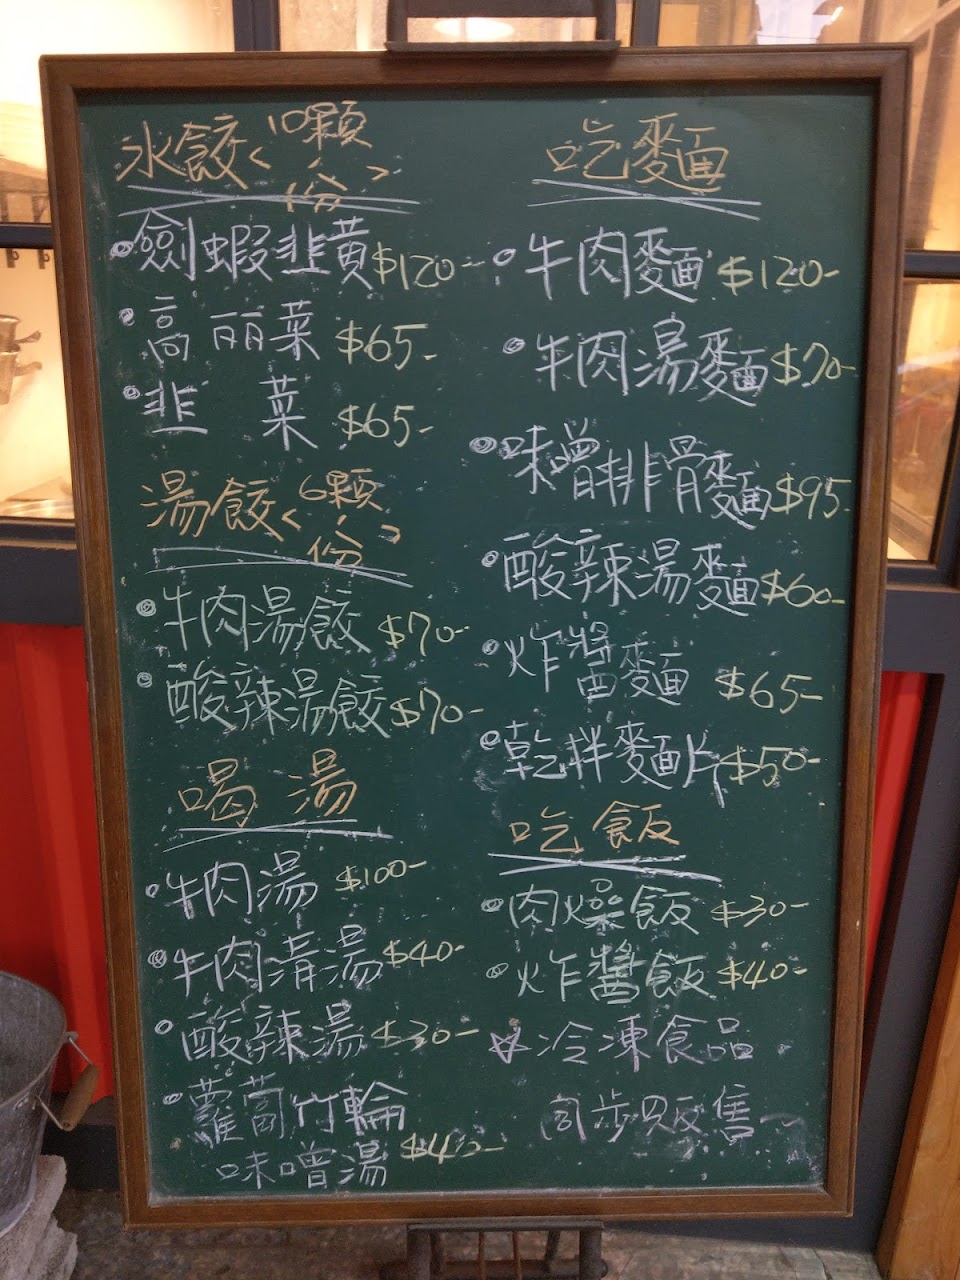 水餃<10顆/份>
劍蝦韭黃$120-
高丽菜 $65-
韭菜 $65-
湯餃<6顆/份>
牛肉湯餃 $70-
酸辣湯餃$70-
喝湯
牛肉湯 $100-
牛肉清湯$40-
酸辣湯$30-
蘿蔔竹輪
味噌湯 $40-
吃麵
牛肉麵 $120-
牛肉湯麵$70-
味噌排骨麵$95-
酸辣湯麵$60-
炸醬麵 $65-
乾拌麵片$50-
吃飯
肉燥飯 $30-
炸醬飯 $40-
冷凍食品
同步販售